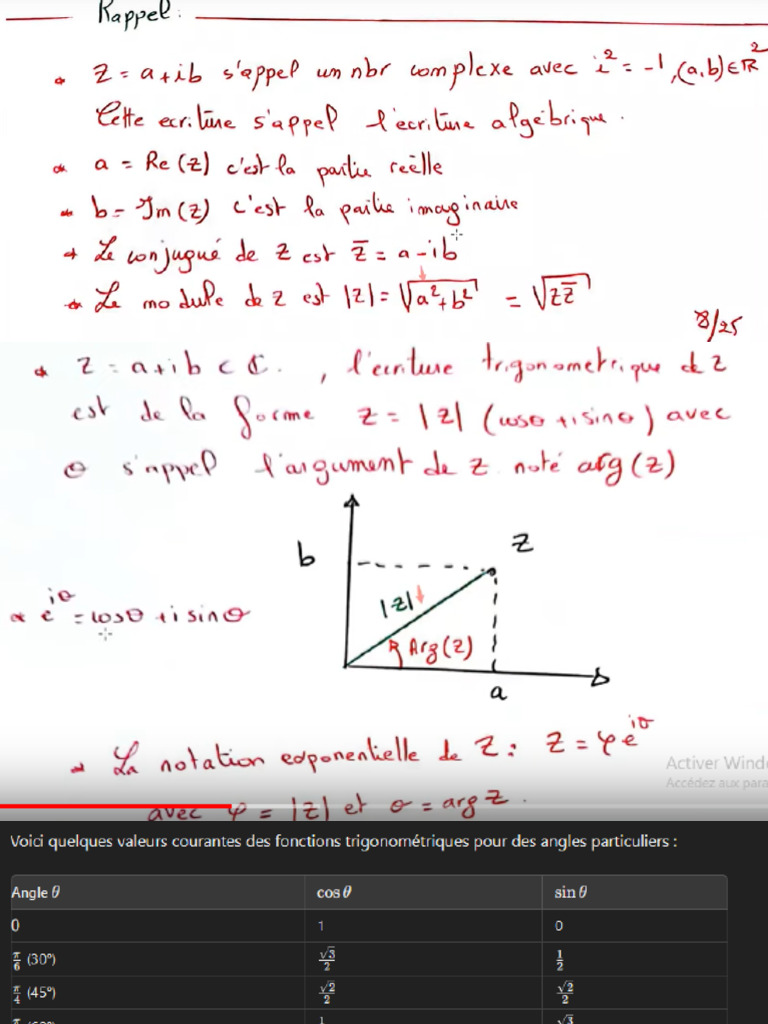 Rappel:
* Z = a+ib s'appel un nbr complexe avec i² = -1, (a,b)∈ℝ²
Cette ecriture s'appel l'ecriture algébrique.
* a = Re(z) c'est la partie reèlle
* b = Im(z) c'est la partie imaginaire
* Le conjugué de z est z̄ = a-ib
* Le module de z est |z| = √(a²+b²) = √(zz̄)
8/25
* Z = a+ib ⊂ ℂ. , l'ecriture trigonometrique de z
est de la forme z = |z| (cosθ + i sinθ) avec
θ s'appel l'argument de z noté arg(z)
b
z
|z|
* e^{iθ} = cosθ + i sinθ
Arg(z)
a
* La notation exponentielle de Z: Z = φe^{iθ}
Activer Wind
Accédez aux para
avec φ = |z| et θ = arg z.
Voici quelques valeurs courantes des fonctions trigonométriques pour des angles particuliers :
Angle θ cos θ sin θ
0 1 0
π/6 (30°) √3/2 1/2
π/4 (45°) √2/2 √2/2